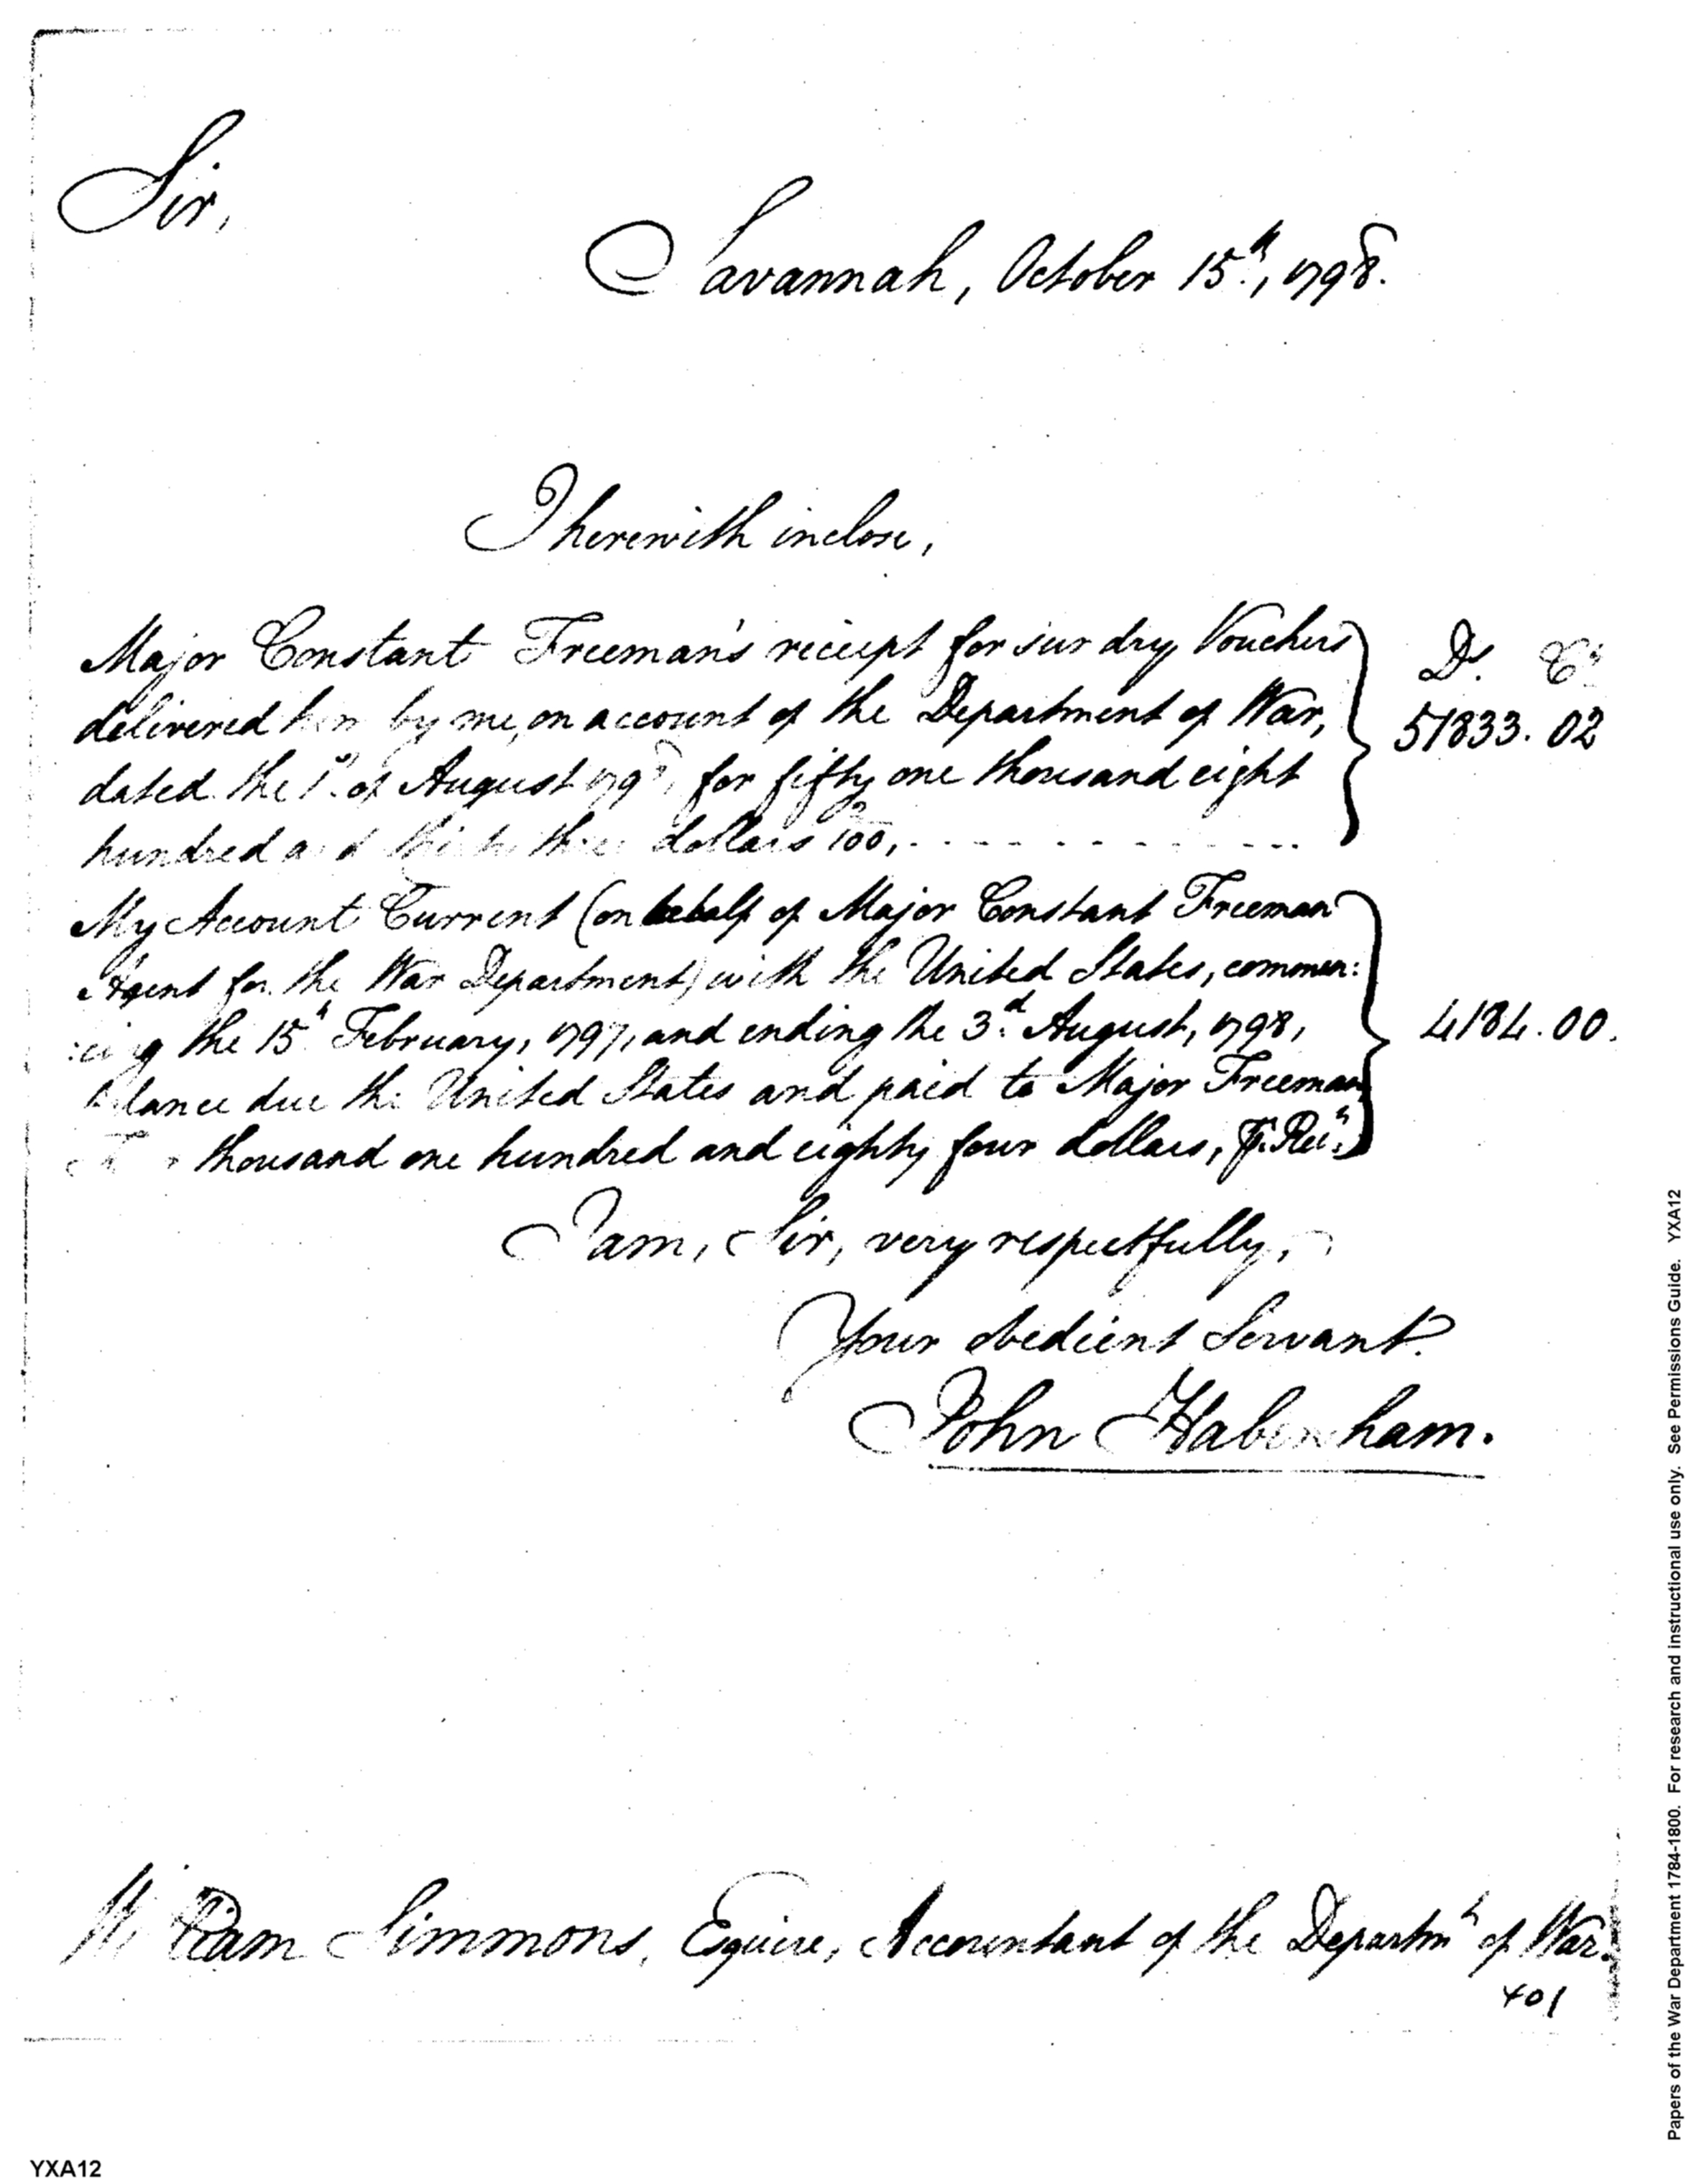 Sir,
Savannah, October 15th, 1798.
I herewith inclose,
Major Constant Freeman's receipt for sundry Vouchers
delivered him by me, on account of the Department of War,
dated the 1st of August 1798, for fifty one thousand eight
hundred and thirty three dollars 2/100,
Ds. Cts
51833. 02
My Account Current (on behalf of Major Constant Freeman
Agent for the War Department) with the United States, commen:
:cing the 15th February, 1797, and ending the 3d. August, 1798,
balance due the United States and paid to Major Freeman,
Four thousand one hundred and eighty four dollars,
4184.00.
I am, Sir, very respectfully,
Your obedient Servant.
John Habersham.
William Simmons, Esquire, Accountant of the Departmt of War.
401
Papers of the War Department 1784-1800. For research and instructional use only. See Permissions Guide. YXA12
YXA12